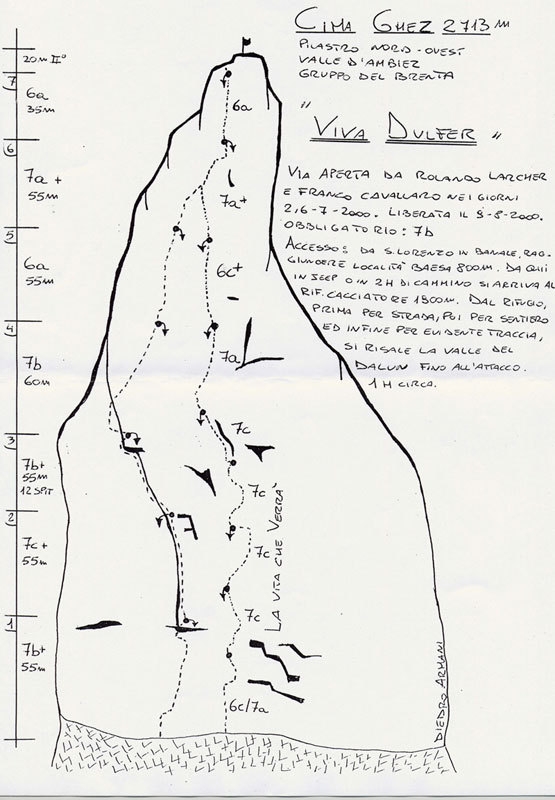 CIMA GHEZ 2713 m
PILASTRO NORD-OVEST
VALLE D'AMBIEZ
GRUPPO DEL BRENTA
" VIVA DULFER "
VIA APERTA DA ROLANDO LARCHER
E FRANCO CAVALLARO NEI GIORNI
2,6-7-2000. LIBERATA IL 9-8-2000.
OBBLIGATORIO: 7b
ACCESSO: DA S.LORENZO IN BANALE, RAG-
GIUNGERE LOCALITÀ BAESA 800m. DA QUI
IN JEEP O IN 2H DI CAMMINO SI ARRIVA AL
RIF. CACCIATORE 1800m. DAL RIFUGIO,
PRIMA PER STRADA, POI PER SENTIERO
ED INFINE PER EVIDENTE TRACCIA,
SI RISALE LA VALLE DEL
DALUN FINO ALL'ATTACCO.
1H CIRCA.
20m II°
7
6a
35m
6
7a+
55m
5
6a
55m
4
7b
60m
3
7b+
55m
12 SPIT
2
7c+
55m
1
7b+
55m
6a
7a+
6c+
7a
7c
7c
7c
7c
6c/7a
LA VITA CHE VERRÀ
DIEDRO ARMANI